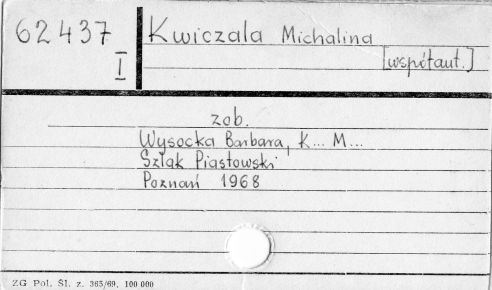 62437
I
Kwiczala Michalina
[współaut.]
zob.
Wysocka Barbara, K... M...
Szlak Piastowski
Poznań 1968
ZG Pol. Śl. z. 365/69, 100 000